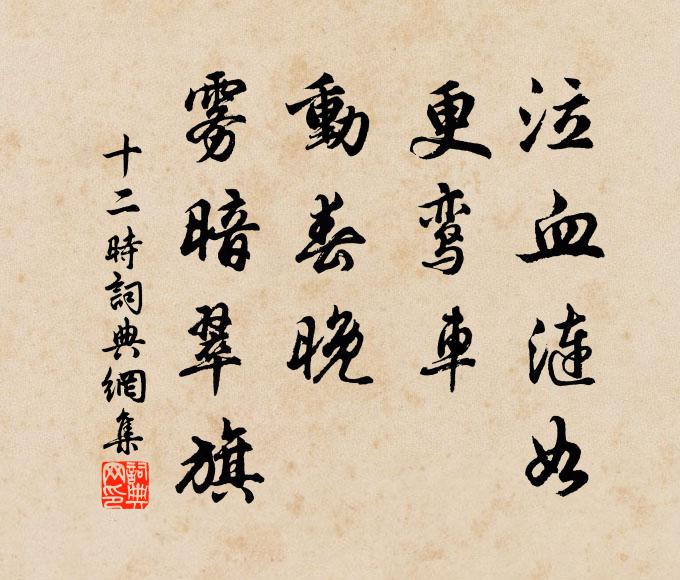 泣血漣如
更鸾車
動春晚
雾暗翠旗
十二時詞典網集
詞典网印